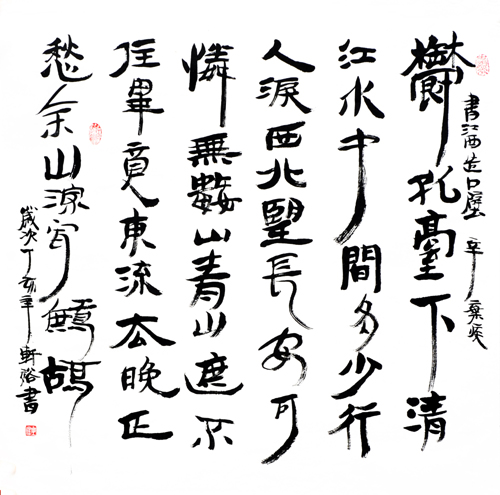 書江西造口壁 辛棄疾
鬱孤臺下清
江水中間多少行
人淚西北望長安可
憐無數山青山遮不
住畢竟東流去晚正
愁余山深闻鷓鴣
歲次丁亥年軒書